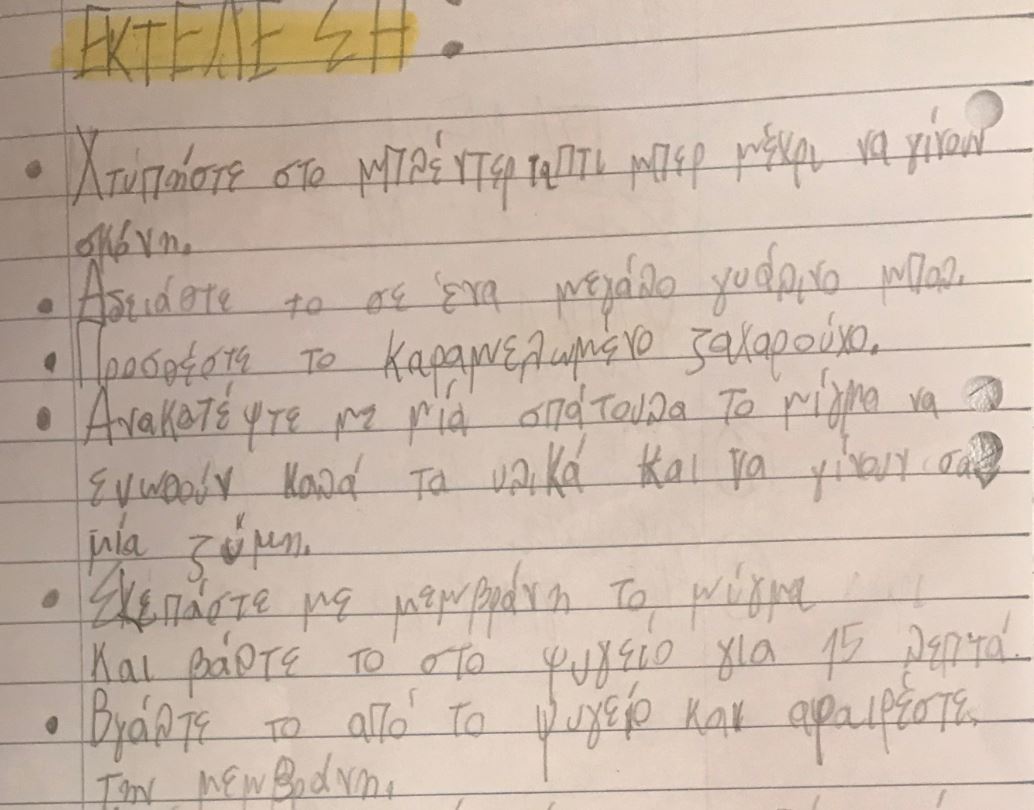 ΕΚΤΕΛΕΣΗ :
• Χτυπήστε στο μπλέντερ τα πτι μπερ μέχρι να γίνουν
σκόνη.
• Αδειάστε το σε ένα μεγάλο γυάλινο μπολ.
• Προσθέστε το καραμελωμένο ζαχαρούχο.
• Ανακατέψτε με μιά σπάτουλα το μίγμα να
ενωθούν καλά τα υλικά και να γίνουν σαν
μία ζύμη.
• Σκεπάστε με μεμβράνη το μίγμα
και βάλτε το στο ψυγείο για 15 λεπτά.
• Βγάλτε το από το ψυγείο και αφαιρέστε
την μεμβράνη.